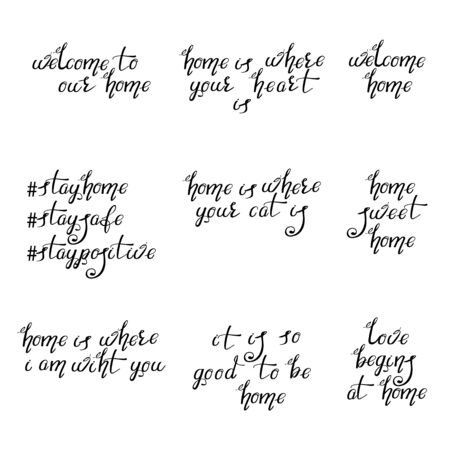 welcome to
our home
home is where
your heart
is
welcome
home
#stayhome
#staysafe
#staypositive
home is where
your cat is
home
sweet
home
home is where
i am wiht you
it is so
good to be
home
love
begins
at home